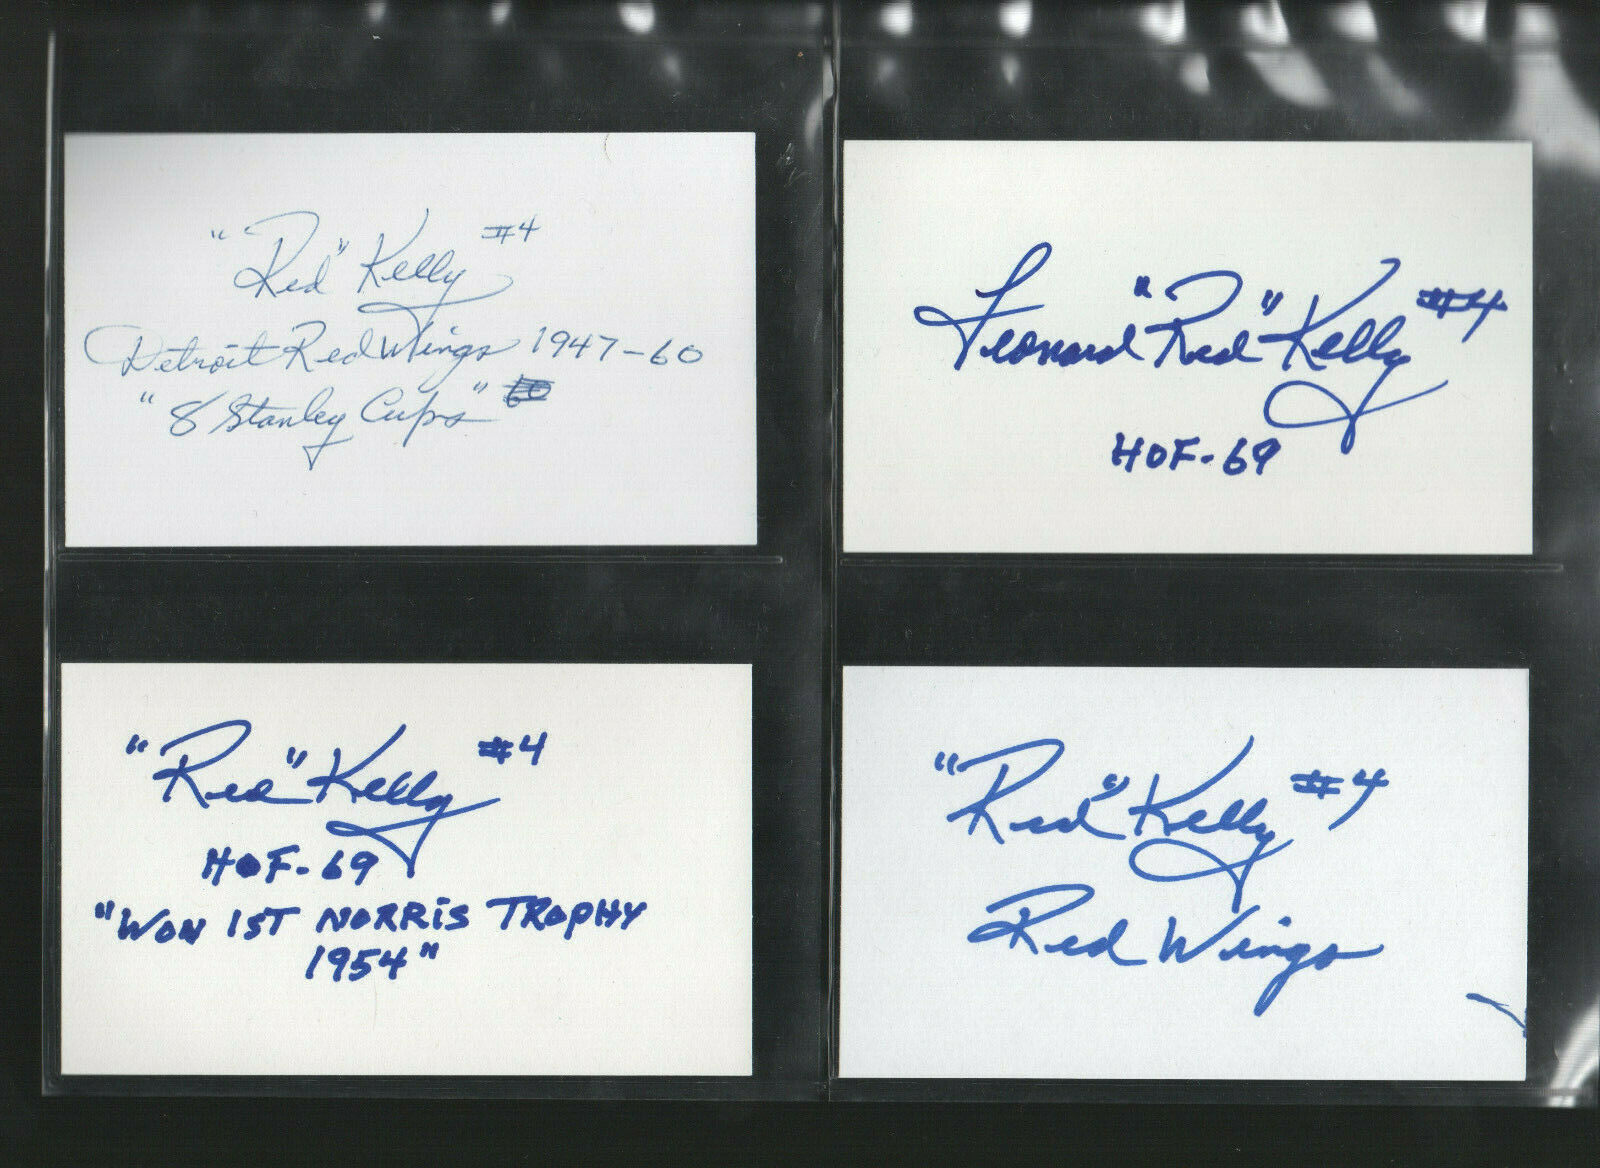 "Red" Kelly #4
Detroit Red Wings 1947-60
"8 Stanley Cups"
Leonard "Red" Kelly #4
HOF-69
"Red" Kelly #4
HOF-69
"WON 1ST NORRIS TROPHY
1954"
"Red" Kelly #4
Red Wings